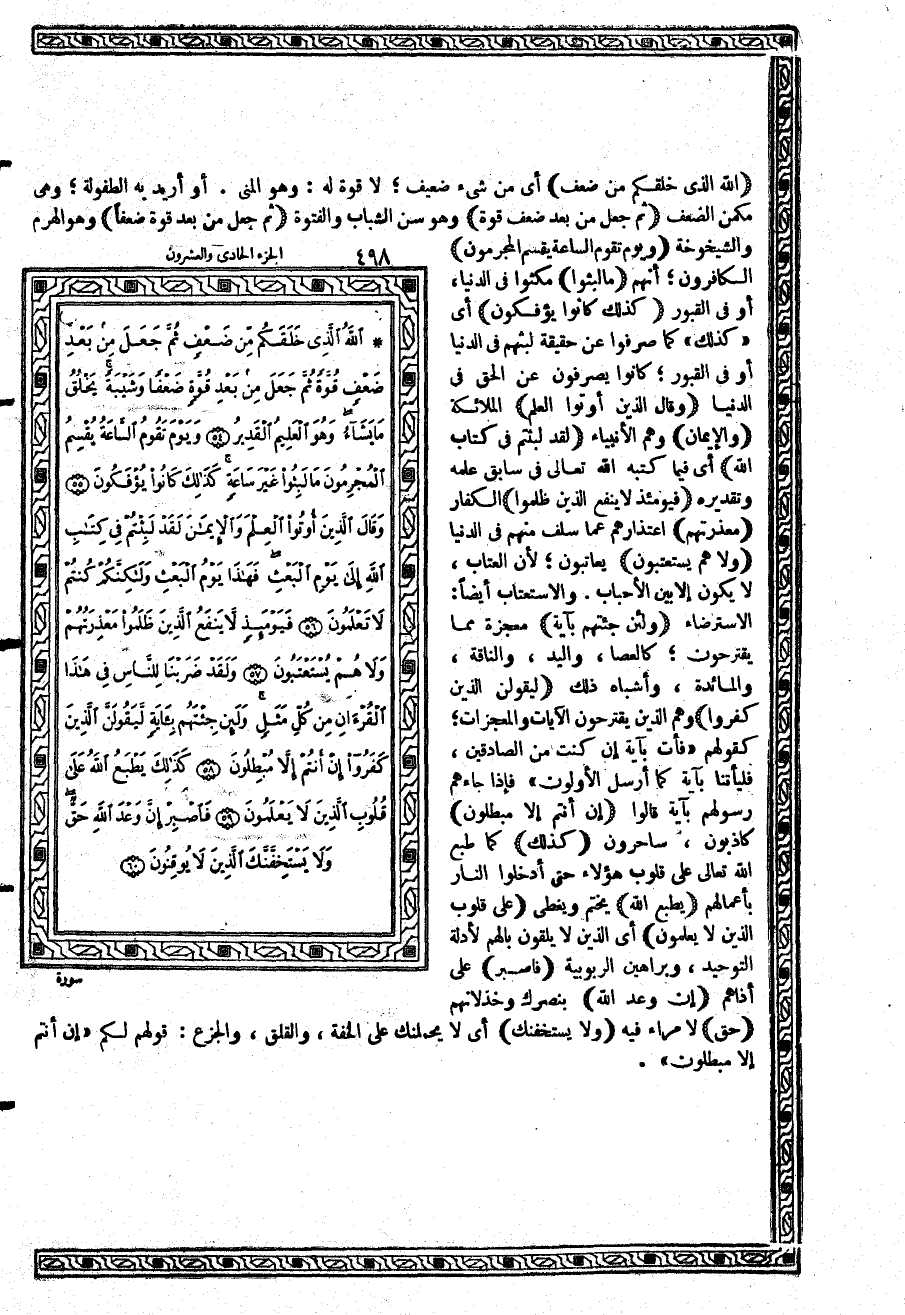 (الله الذى خلقكم من ضعف) أى من شىء ضعيف ؛ لا قوة له : وهو المنى . أو أريد به الطفولة ؛ وهى
مكمن الضعف (ثم جعل من بعد ضعف قوة) وهو سن الشباب والفتوة (ثم جعل من بعد قوة ضعفاً) وهو الهرم
والشيخوخة (ويوم تقوم الساعة يقسم المجرمون)
الكافرون ؛ أنهم (مالبثوا) مكثوا فى الدنيا،
أو فى القبور (كذلك كانوا يؤفكون) أى
«كذلك» كما صرفوا عن حقيقة لبثهم فى الدنيا
أو فى القبور ؛ كانوا يصرفون عن الحق فى
الدنيا (وقال الذين أوتوا العلم) الملائكة
(والإيمان) وهم الأنبياء (لقد لبثتم فى كتاب
الله) أى فيما كتبه الله تعالى فى سابق علمه
وتقديره (فيومئذ لاينفع الذين ظلموا) الكفار
(معذرتهم) اعتذارهم عما سلف منهم فى الدنيا
(ولا هم يستعتبون) يعاتبون ؛ لأن العتاب ،
لا يكون إلا بين الأحباب . والاستعتاب أيضاً:
الاسترضاء (ولئن جئتهم بآية) معجزة مما
يقترحون ؛ كالعصا ، واليد ، والناقة ،
والمائدة ، وأشباه ذلك (ليقولن الذين
كفروا) وهم الذين يقترحون الآيات والمعجزات؛
كقولهم «فأت بآية إن كنت من الصادقين ،
فليأتنا بآية كما أرسل الأولون» فإذا جاءهم
رسولهم بآية قالوا (إن أنتم إلا مبطلون)
كاذبون ، ساحرون (كذلك) كما طبع
الله تعالى على قلوب هؤلاء حتى أدخلوا النار
بأعمالهم (يطبع الله) يختم ويغطى (على قلوب
الذين لا يعلمون) أى الذين لا يلقون بالهم لأدلة
التوحيد ، وبراهين الربوبية (فاصبر) على
أذاهم (إن وعد الله) بنصرك وخذلانهم
(حق) لا مراء فيه (ولا يستخفنك) أى لا يحملنك على الخفة ، والقلق ، والجزع : قولهم لكم «إن أنتم
إلا مبطلون» .
٤٩٨ الجزء الحادى والعشرون
* ٱللَّهُ ٱلَّذِى خَلَقَكُم مِّن ضَعْفٍ ثُمَّ جَعَلَ مِنۢ بَعْدِ
ضَعْفٍ قُوَّةً ثُمَّ جَعَلَ مِنۢ بَعْدِ قُوَّةٍ ضَعْفًا وَشَيْبَةً ۚ يَخْلُقُ
مَا يَشَآءُ ۖ وَهُوَ ٱلْعَلِيمُ ٱلْقَدِيرُ ٥٤ وَيَوْمَ تَقُومُ ٱلسَّاعَةُ يُقْسِمُ
ٱلْمُجْرِمُونَ مَا لَبِثُوا۟ غَيْرَ سَاعَةٍ ۚ كَذَٰلِكَ كَانُوا۟ يُؤْفَكُونَ ٥٥
وَقَالَ ٱلَّذِينَ أُوتُوا۟ ٱلْعِلْمَ وَٱلْإِيمَٰنَ لَقَدْ لَبِثْتُمْ فِى كِتَٰبِ
ٱللَّهِ إِلَىٰ يَوْمِ ٱلْبَعْثِ ۖ فَهَٰذَا يَوْمُ ٱلْبَعْثِ وَلَٰكِنَّكُمْ كُنتُمْ
لَا تَعْلَمُونَ ٥٦ فَيَوْمَئِذٍ لَّا يَنفَعُ ٱلَّذِينَ ظَلَمُوا۟ مَعْذِرَتُهُمْ
وَلَا هُمْ يُسْتَعْتَبُونَ ٥٧ وَلَقَدْ ضَرَبْنَا لِلنَّاسِ فِى هَٰذَا
ٱلْقُرْءَانِ مِن كُلِّ مَثَلٍ ۚ وَلَئِن جِئْتَهُم بِـَٔايَةٍ لَّيَقُولَنَّ ٱلَّذِينَ
كَفَرُوٓا۟ إِنْ أَنتُمْ إِلَّا مُبْطِلُونَ ٥٨ كَذَٰلِكَ يَطْبَعُ ٱللَّهُ عَلَىٰ
قُلُوبِ ٱلَّذِينَ لَا يَعْلَمُونَ ٥٩ فَٱصْبِرْ إِنَّ وَعْدَ ٱللَّهِ حَقٌّ ۖ
وَلَا يَسْتَخِفَّنَّكَ ٱلَّذِينَ لَا يُوقِنُونَ ٦٠
سورة